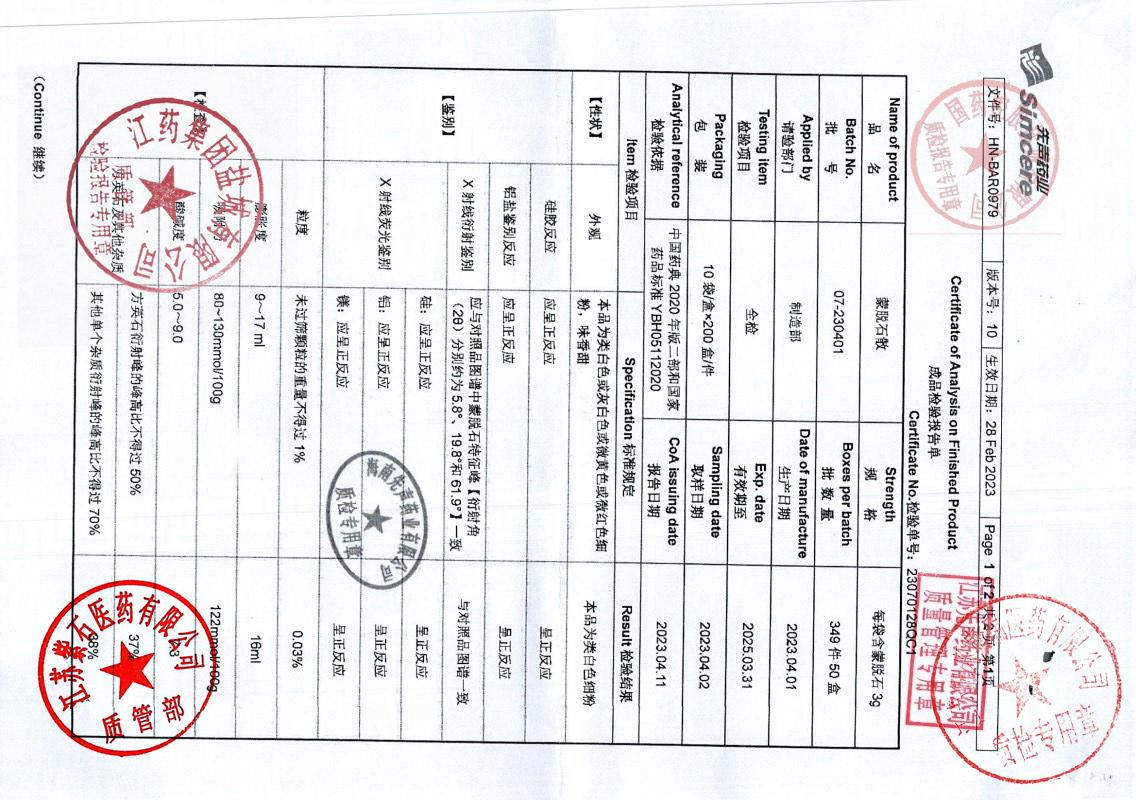 先声药业
Simcere
文件号: HN-BAR0979 版本号: 10 生效日期: 28 Feb 2023 Page 1 of 2 第1页
Certificate of Analysis on Finished Product
成品检验报告单
Certificate No.检验单号: 23070128QC1
Name of product 品 名 蒙脱石散 Strength 规 格 每袋含蒙脱石 3g
Batch No. 批 号 07-230401 Boxes per batch 批 数 量 349 件 50 盒
Applied by 请验部门 制造部 Date of manufacture 生产日期 2023.04.01
Testing item 检验项目 全检 Exp. date 有效期至 2025.03.31
Packaging 包 装 10 袋/盒×200 盒/件 Sampling date 取样日期 2023.04.02
Analytical reference 检验依据 中国药典 2020 年版二部和国家药品标准 YBH05112020 CoA issuing date 报告日期 2023.04.11
Item 检验项目 Specification 标准规定 Result 检验结果
【性状】 外观 本品为类白色或灰白色或微黄色或微红色细粉，味香甜 本品为类白色细粉
【鉴别】 硅胶反应 应呈正反应 呈正反应
铝盐鉴别反应 应呈正反应 呈正反应
X 射线衍射鉴别 应与对照品图谱中蒙脱石特征峰【衍射角（2θ）分别约为 5.8°、19.8°和 61.9°】一致 与对照品图谱一致
X 射线荧光鉴别 硅: 应呈正反应 呈正反应
铝: 应呈正反应 呈正反应
镁: 应呈正反应 呈正反应
【检查】 粒度 未过筛颗粒的重量不得过 1% 0.03%
膨胀度 9~17 ml 16ml
80~130mmol/100g 122mmol/100g
酸碱度 5.0~9.0
方英石及其他杂质 方英石衍射峰的峰高比不得过 50% 37%
其他单个杂质衍射峰的峰高比不得过 70% 38%
(Continue 继续)
海南先声药业有限公司
质检专用章
江苏紫石医药有限公司
质管部
江药集团盐城有限公司
质管部
检验报告专用章
质检报告专用章
质量管理专用章
质检专用章